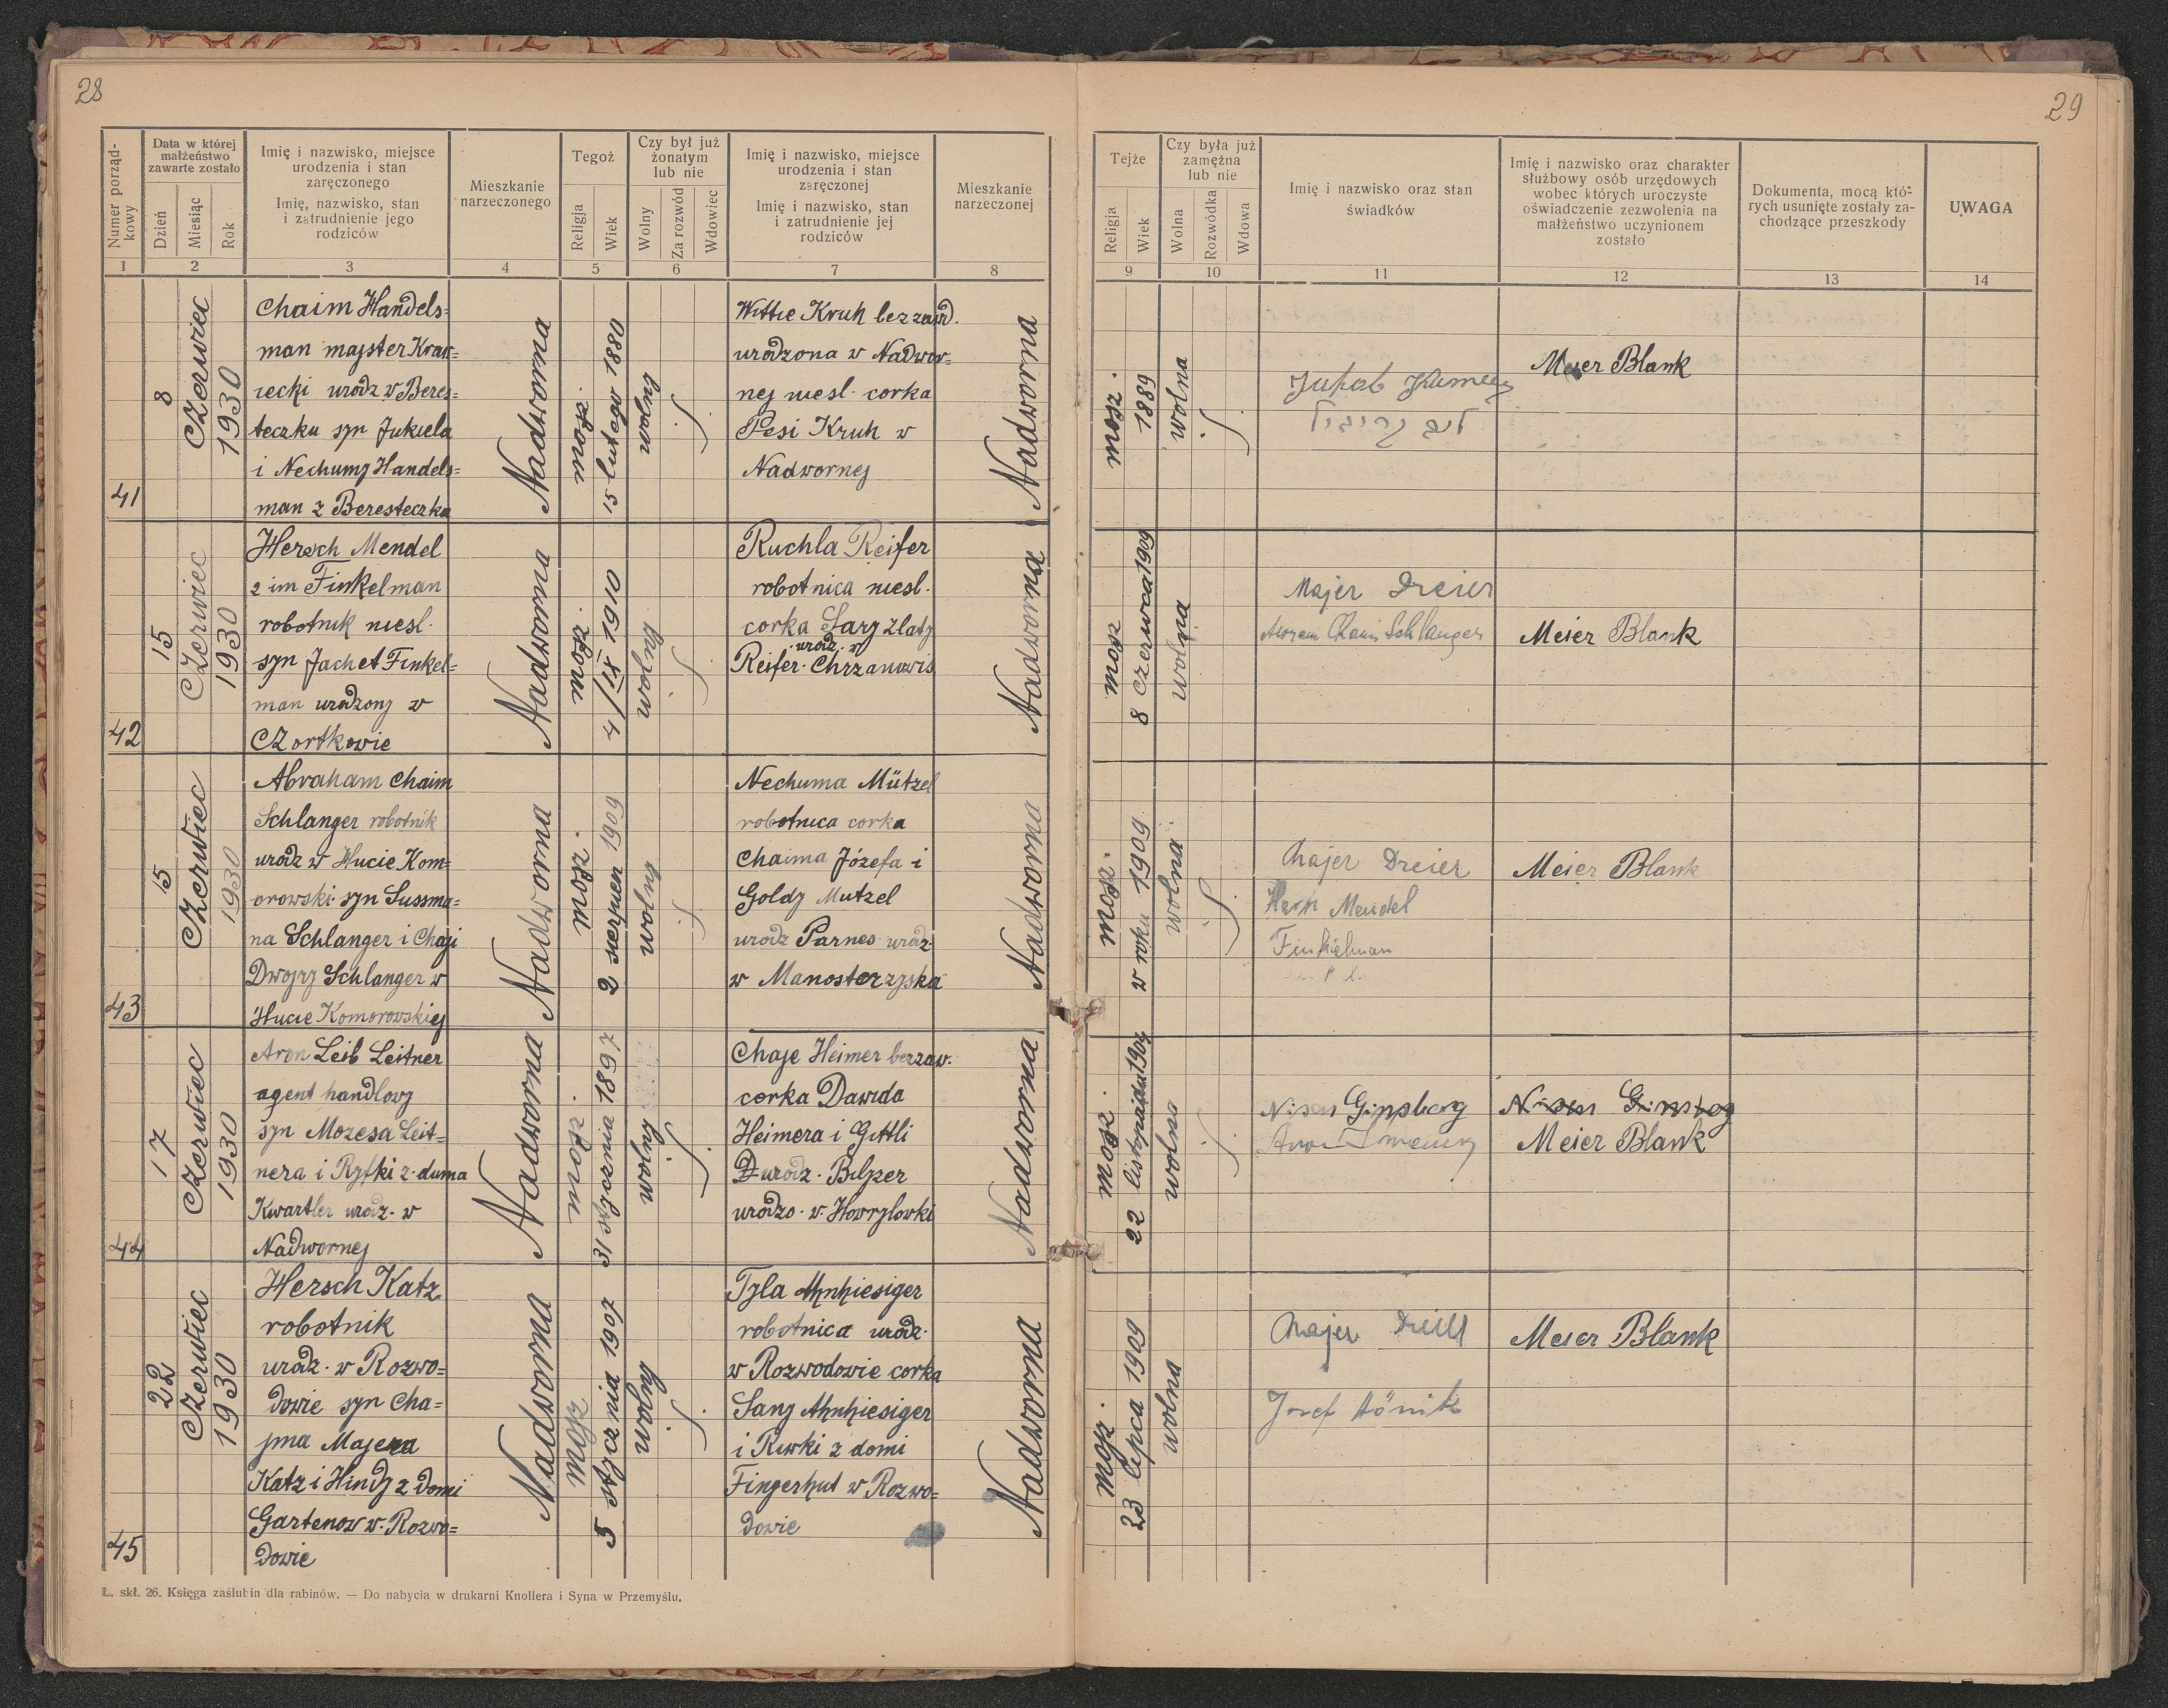 28
29
Numer porządkowy
Data w której małżeństwo zawarte zostało
Dzień
Miesiąc
Rok
Imię i nazwisko, miejsce urodzenia i stan zaręczonego
Imię, nazwisko, stan i zatrudnienie jego rodziców
Mieszkanie narzeczonego
Tegoż
Religja
Wiek
Czy był już żonatym lub nie
Wolny
Za rozwód
Wdowiec
Imię i nazwisko, miejsce urodzenia i stan zaręczonej
Imię i nazwisko, stan i zatrudnienie jej rodziców
Mieszkanie narzeczonej
Tejże
Religja
Wiek
Czy była już zamężna lub nie
Wolna
Rozwódka
Wdowa
Imię i nazwisko oraz stan świadków
Imię i nazwisko oraz charakter służbowy osób urzędowych wobec których uroczyste oświadczenie zezwolenia na małżeństwo uczynionem zostało
Dokumenta, mocą których usunięte zostały zachodzące przeszkody
UWAGA
1 2 3 4 5 6 7 8 9 10 11 12 13 14
41
8
Czerwiec
1930
Chaim Handels=
man majster Kraw=
iecki urodz w Beres=
teczku syn Jukiela
i Nechumy Handels=
man z Beresteczka
Nadworna
mojż.
15 lutego 1880
wolny
Wittie Kruh bez zawd.
urodzona w Nadwor=
nej niesl. corka
Pesi Kruh w
Nadwornej
Nadworna
mojż.
1889
wolna
Jakob
Meier Blank
42
15
Czerwiec
1930
Hersch Mendel
2 im Finkelman
robotnik niesl.
syn Jachet Finkel=
man urodzony w
Czortkowie
Nadworna
mojż.
4/IX 1910
wolny
Ruchla Reifer
robotnica niesl.
corka Sary Zlaty
urodz. w
Reifer. Chrzanowie
Nadworna
mojż
8 czerwca 1909
wolna
Majer Dreier
Chaim Schlanger
Meier Blank
43
15
Czerwiec
1930
Abraham Chaim
Schlanger robotnik
urodz w Hucie Kom=
orowski syn Sussma=
na Schlanger i Chaji
Dwojry Schlanger w
Hucie Komorowskiej
Nadworna
mojż.
2 sierpien 1909
wolny
Nechuma Mützel
robotnica corka
Chaima Józefa i
Goldy Mutzel
urodz Parnes urodz.
w Manosterzyska
Nadworna
mojż.
w roku 1909
wolna
Majer Dreier
Hersh Mendel
Finkielman
Meier Blank
44
17
Czerwiec
1930
Aron Leib Leitner
agent handlowy
syn Mozesa Leit=
nera i Ryfki z duma
Kwartler urodz. w
Nadwornej
Nadworna
mojż.
31 stycznia 1897
wolny
Chaje Heimer bez zaw.
corka Dawida
Heimera i Gittli
D urodz. Bilzer
urodzo. w. Howrylowki
Nadworna
mojż.
22 listopada 1904
wolna
Nisen Ginsberg
Nisen Ginsberg
Meier Blank
45
22
Czerwiec
1930
Hersch Katz
robotnik
urodz. w Rozwo=
dowie syn Cha=
jma Majera
Katz i Hindy z domi
Gartenow w. Rozwo=
dowie
Nadworna
mojż
5 stycznia 1907
wolny
Tyla Ahnhiesiger
robotnica urodz.
w Rozwodowie corka
Sany Ahnhiesiger
i Riwki z domi
Fingerhut w Rozwo=
dowie
Nadworna
mojż.
23 lipca 1909
wolna
Majer Dreier
Josef Hönik
Meier Blank
Ł. skł. 26. Księga zaślubin dla rabinów. — Do nabycia w drukarni Knollera i Syna w Przemyślu.